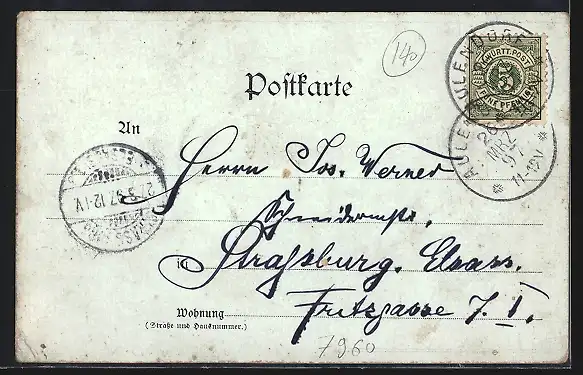 140
Postkarte
K. WÜRTT. POST
5
FÜNF PFENNIG
AULENDORF
26 MRZ 97
11-12V.
An
Herrn Jos. Werner
Schneidermstr.
in Straßburg. Elsass.
27.3.97.12-1V
Wohnung Fritzgasse 7. I.
(Straße und Hausnummer.)
7960